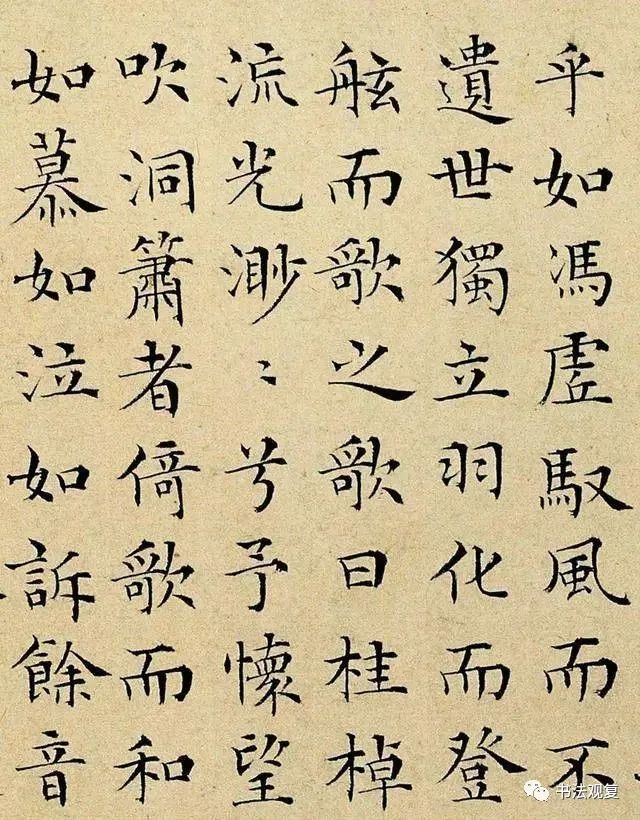 乎如馮虛馭風而不
遺世獨立羽化而登
舷而歌之歌曰桂棹
流光渺〻兮予懷望
吹洞簫者倚歌而和
如慕如泣如訴餘音
书法观复